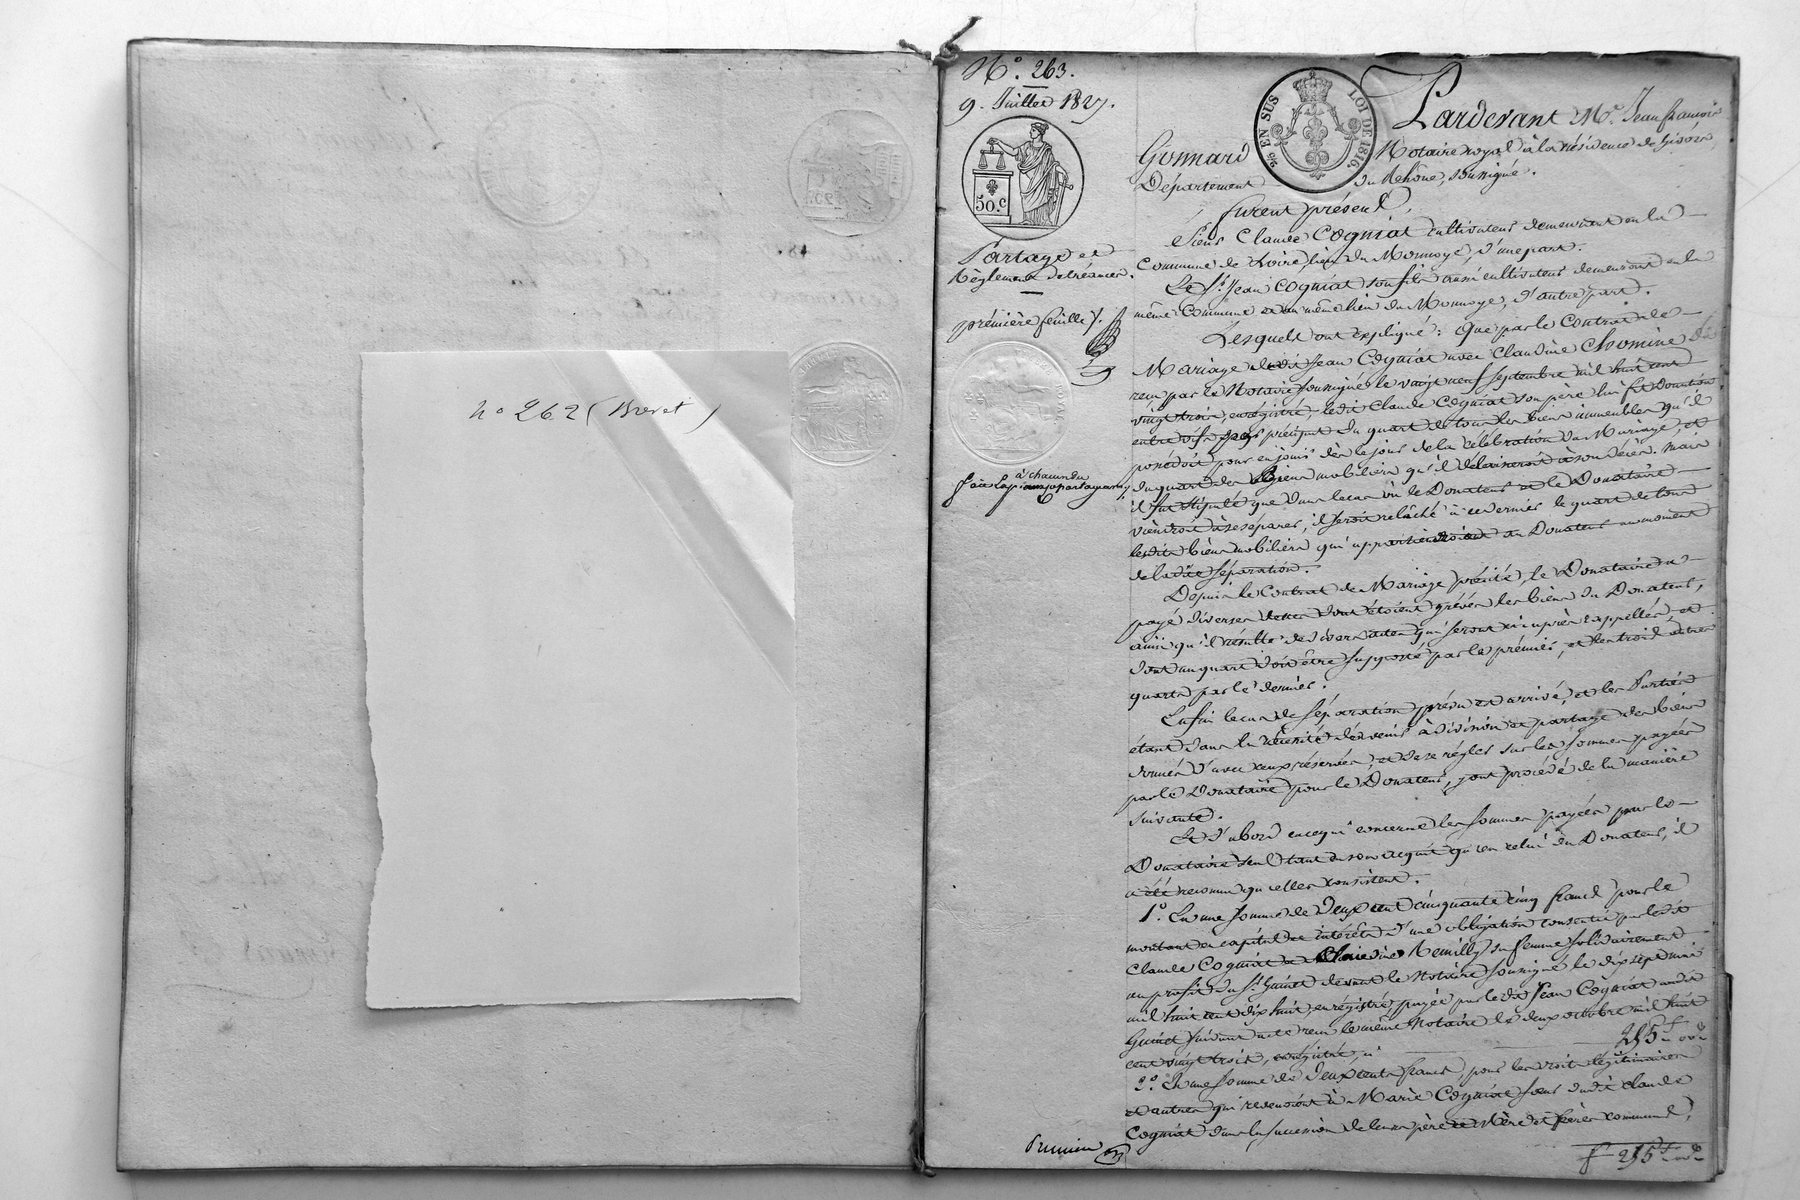 n° 262 (Brevet)
N.° 263.
9. Juillet 1827.
50.c
Partage et
Règlement de créances.
première feuille %.
à chacun du
% EN SUS
LOI DE 1816.
Pardevant M.e Jean françois
Gonnard Notaire royal à la résidence de Givors,
Département du Rhône, soussigné.
furent présents,
Sieur Claude Cogniat cultivateur demeurant en la
Commune de Loire lieu du Monnoye, d'une part.
Le S.r Jean Cogniat son fils aussi cultivateur demeurant en la
même Commune et au même lieu du Monnoye, d'autre part.
Lesquels ont expliqué : Que par le Contrat de
Mariage dudit Jean Cogniat avec Claudine Chomine
reçu par le Notaire soussigné le vingt neuf septembre mil huit cent
vingt trois, enregistré, ledit Claude Cogniat son père lui fit Donation
entre vifs par préciput du quart de tous les biens immeubles qu'il
possédoit pour en jouir dès le jour de la célébration du Mariage, et
du quart des biens mobiliers qu'il délaisseroit à son décès. Mais
il fut stipulé que dans le cas où le Donateur et le Donataire
viendroit à se séparer, il seroit relâché à ce dernier le quart de tous
lesdits biens mobiliers qui appartiendroient au Donateur au moment
de la dite séparation.
Depuis le Contrat de Mariage précité, le Donataire a
payé diverses dettes dont étoient grévés les biens du Donateur,
ainsi qu'il résulte de divers actes qui seront ci après rappellés, et
dont un quart doit être supporté par le premier, et les trois autres
quarts par le dernier.
Enfin le cas de séparation prévu est arrivé, et les Parties
étant dans la nécessité d'en venir à division et partage des biens
donnés d'avec ceux réservés, et de se régler sur les sommes payées
par le Donataire pour le Donateur, y ont procédé de la manière
suivante.
Et d'abord en ce qui concerne les sommes payées par le
Donataire seul tant en son acquit qu'en celui du Donateur, il
a été reconnu qu'elles consistent.
1.° En une somme de Deux cent cinquante cinq francs pour le
montant en capital et intérêts d'une obligation consentie par ledit
Claude Cogniat et Claudine Remilly sa femme solidairement
au profit du S.r Guinet devant le Notaire soussigné le dix sept mai
mil huit cent dix huit, enregistré, payée par ledit Jean Cogniat audit
Guinet suivant acte reçu le même Notaire le deux octobre mil huit
cent vingt trois, enregistré, ci 255f 00c
2.° En une somme de Deux cents francs, pour les droits légitimaires
et autres qui revenoient à Marie Cogniat soeur dudit Claude
Cogniat dans la succession de leurs père et Mère et frères communs,
f 255f 00c